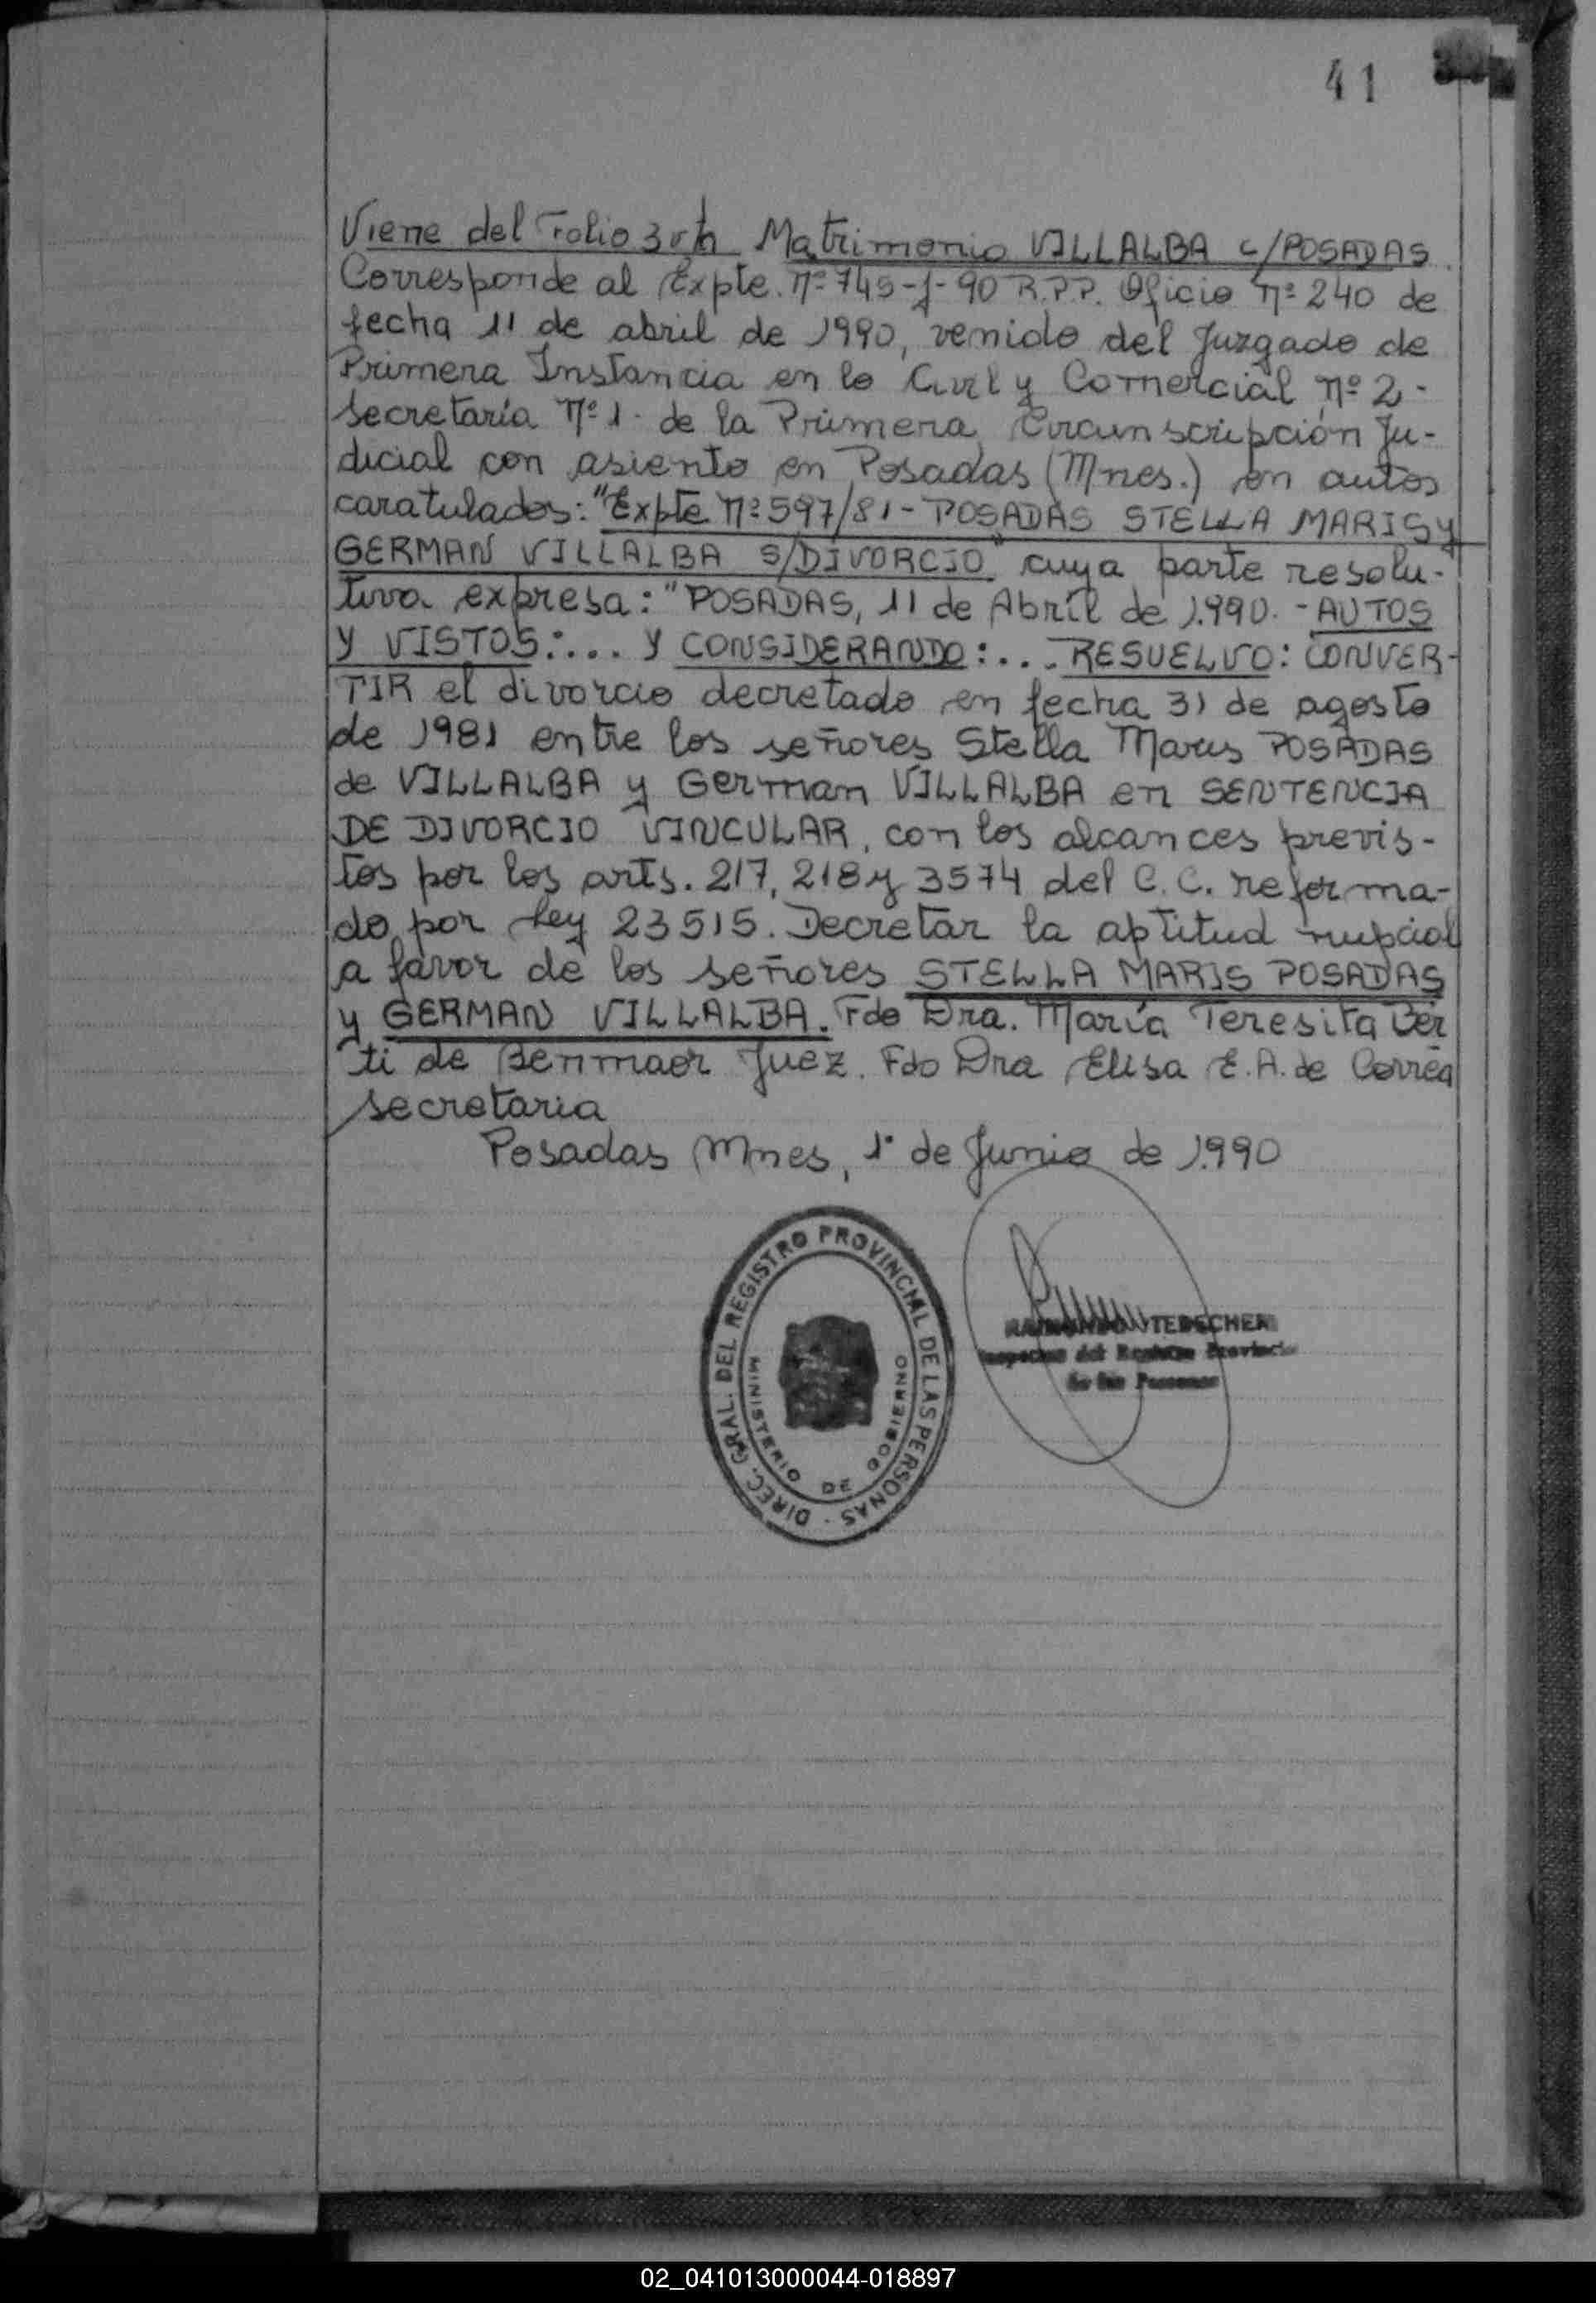 41
Viene del Folio 3 vta Matrimonio VILLALBA c/POSADAS
Corresponde al Expte. Nº 745-J-90 R.P.P. Oficio Nº 240 de
fecha 11 de abril de 1990, venido del Juzgado de
Primera Instancia en lo Civil y Comercial Nº 2-
Secretaría Nº 1- de la Primera Circunscripción Ju-
dicial con asiento en Posadas (Mnes.) en autos
caratulados: "Expte Nº 597/81- POSADAS STELLA MARIS y
GERMAN VILLALBA S/DIVORCIO" cuya parte resolu-
tiva expresa: "POSADAS, 11 de Abril de 1.990. - AUTOS
Y VISTOS:... Y CONSIDERANDO:... RESUELVO: CONVER-
TIR el divorcio decretado en fecha 31 de agosto
de 1981 entre los señores Stella Maris POSADAS
de VILLALBA y German VILLALBA en SENTENCIA
DE DIVORCIO VINCULAR, con los alcances previs-
tos por los arts. 217, 218 y 3574 del C.C. reforma-
do por Ley 23515. Decretar la aptitud nupcial
a favor de los señores STELLA MARIS POSADAS
y GERMAN VILLALBA. Fdo Dra. María Teresita Ber
ti de Benmaor Juez. Fdo Dra Elisa E.A. de Correa
secretaria
Posadas Mnes, 1º de Junio de 1.990
DIREC. GRAL. DEL REGISTRO PROVINCIAL DE LAS PERSONAS -
MINISTERIO DE GOBIERNO
del Registro Provincial
de las Personas
02_041013000044-018897